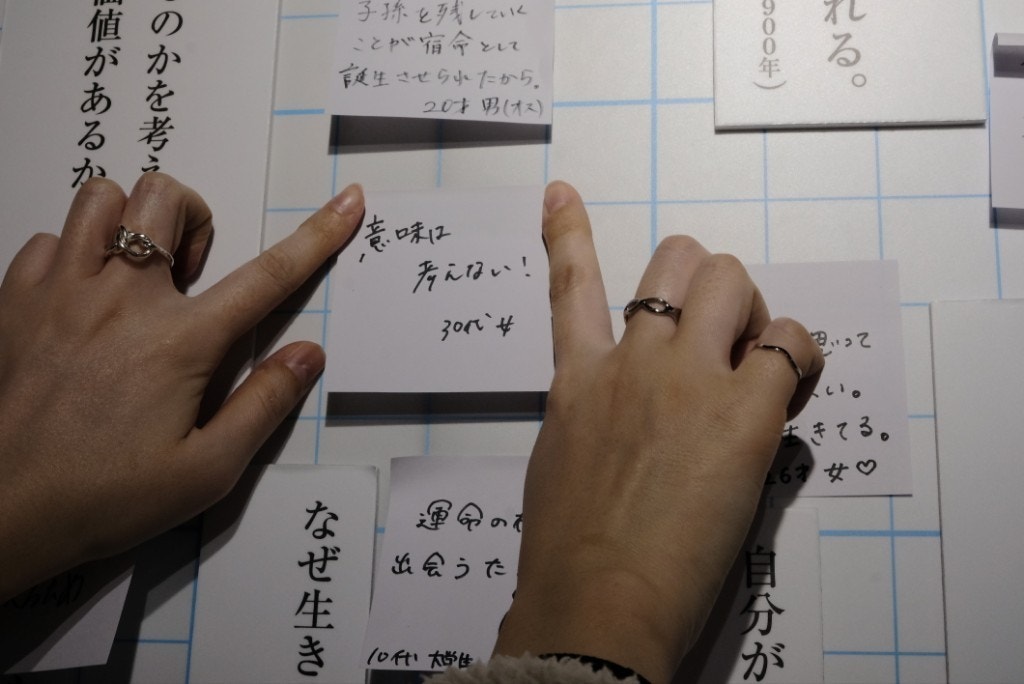 のかを考え
価値があるか
子孫を残していく
ことが宿命として
誕生させられたから。
20才 男(オス)
れる。
900年)
意味は
考えない!
30代 女
思って
い。
生きてる。
6才 女♡
なぜ生き
運命の
出会うた
10代 大学生
自分が